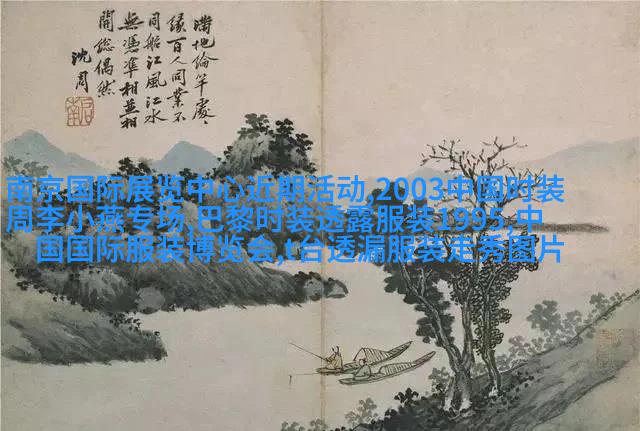 滿地綸竿處處
緣百人同業不
同船江風江水
無憑準相並相
開總偶然
沈周
南京国际展览中心近期活动,2003中国时装
周李小燕专场,巴黎时装透露服装1995,中
国国际服装博览会,t台透漏服装走秀图片